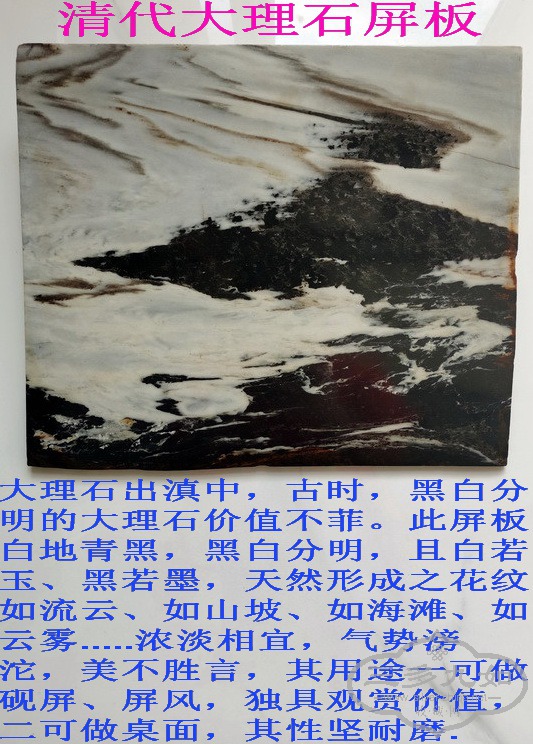 清代大理石屏板
大理石出滇中，古时，黑白分
明的大理石价值不菲。此屏板
白地青黑，黑白分明，且白若
玉、黑若墨，天然形成之花纹
如流云、如山坡、如海滩、如
云雾.....浓淡相宜，气势滂
沱，美不胜言，其用途一可做
砚屏、屏风，独具观赏价值，
二可做桌面，其性坚耐磨.